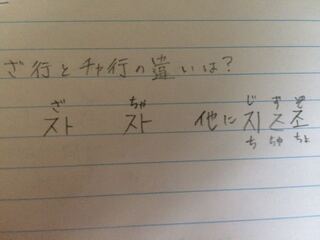 ざ行とチャ行の違いは?
ざ ちゃ じ ず ぞ
스ト 스ト 他に 지 즈 조
ち ちゅ ちょ